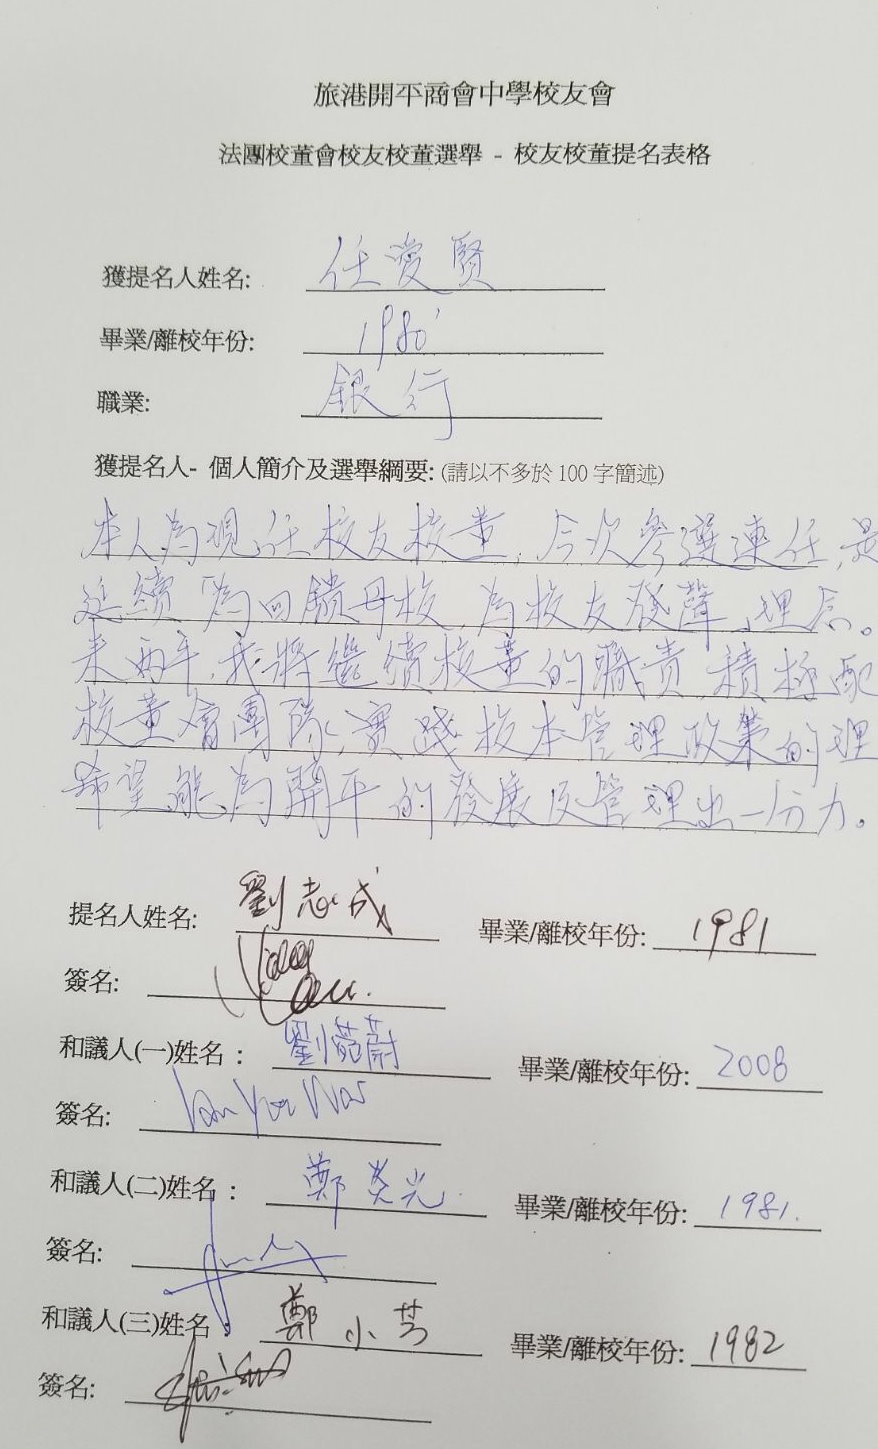 旅港開平商會中學校友會
法團校董會校友校董選舉 - 校友校董提名表格
獲提名人姓名: 任愛賢
畢業/離校年份: 1980'
職業: 銀行
獲提名人- 個人簡介及選舉綱要: (請以不多於 100 字簡述)
本人為現任校友校董,今次參選連任,是
延續「為回饋母校,為校友發聲」理念。
來兩年,我將繼續校董的職責,積極配
校董會團隊,實踐校本管理政策的理
希望能為開平的發展及管理出一份力。
提名人姓名: 劉志成 畢業/離校年份: 1981
簽名:
和議人(一)姓名： 劉菀蔚 畢業/離校年份: 2008
簽名:
和議人(二)姓名： 鄭美光 畢業/離校年份: 1981.
簽名:
和議人(三)姓名： 鄭小芳 畢業/離校年份: 1982
簽名: